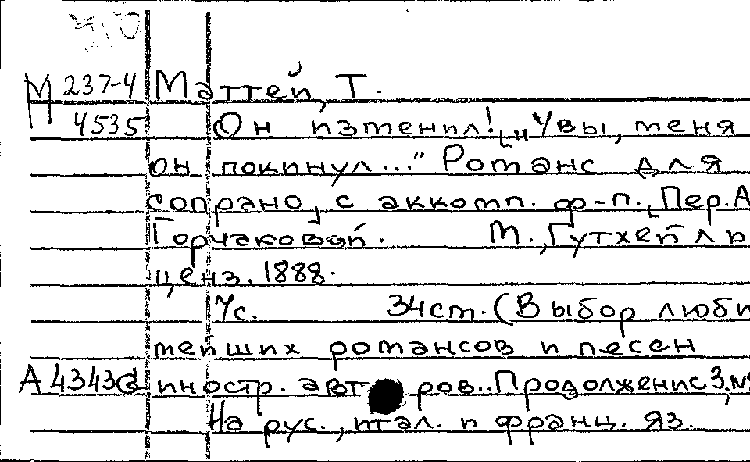 М 237-4 Маттей, Т.
4535 Он изменил! „Увы, меня
он покинул..." Романс для
сопрано, с аккомп. ф-п., Пер. А
Горчаковой. М., Гутхейль
ценз. 1888.
7с. 34см. (Выбор люби
мейших романсов и песен
А 4343 иностр. авторов.. Продолжение 3, №
На рус., итал. и франц. яз.